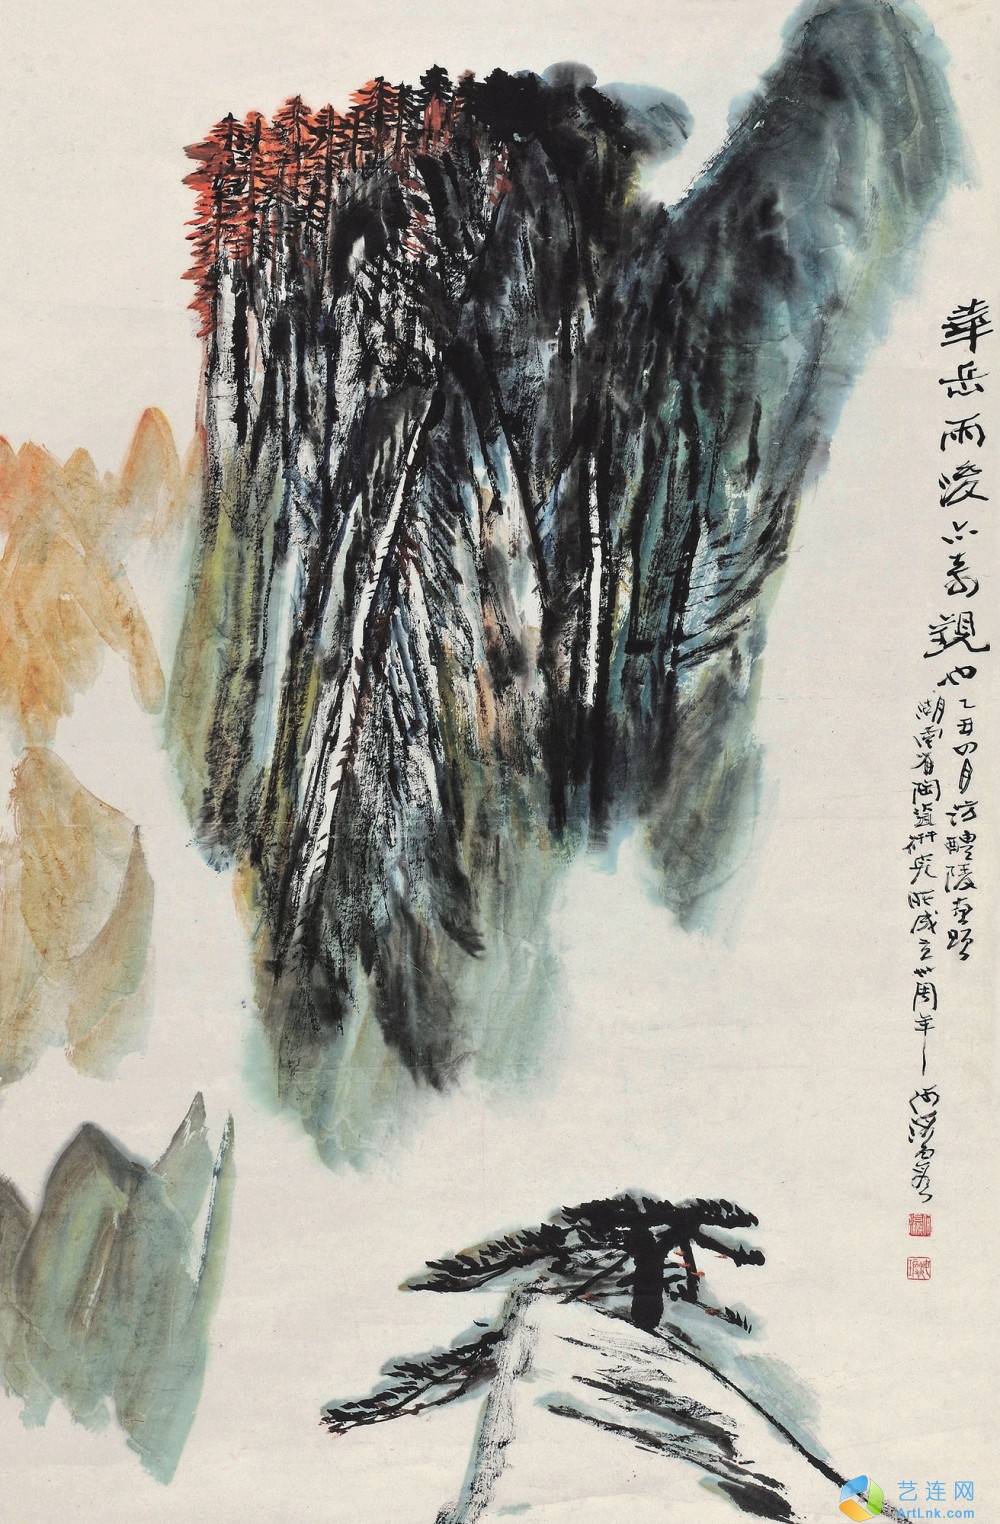 華岳雨後亦奇觀也
乙丑四月訪醴陵並題
湖南省陶瓷研究所成立卅周年
艺连网
ArtLnk.com